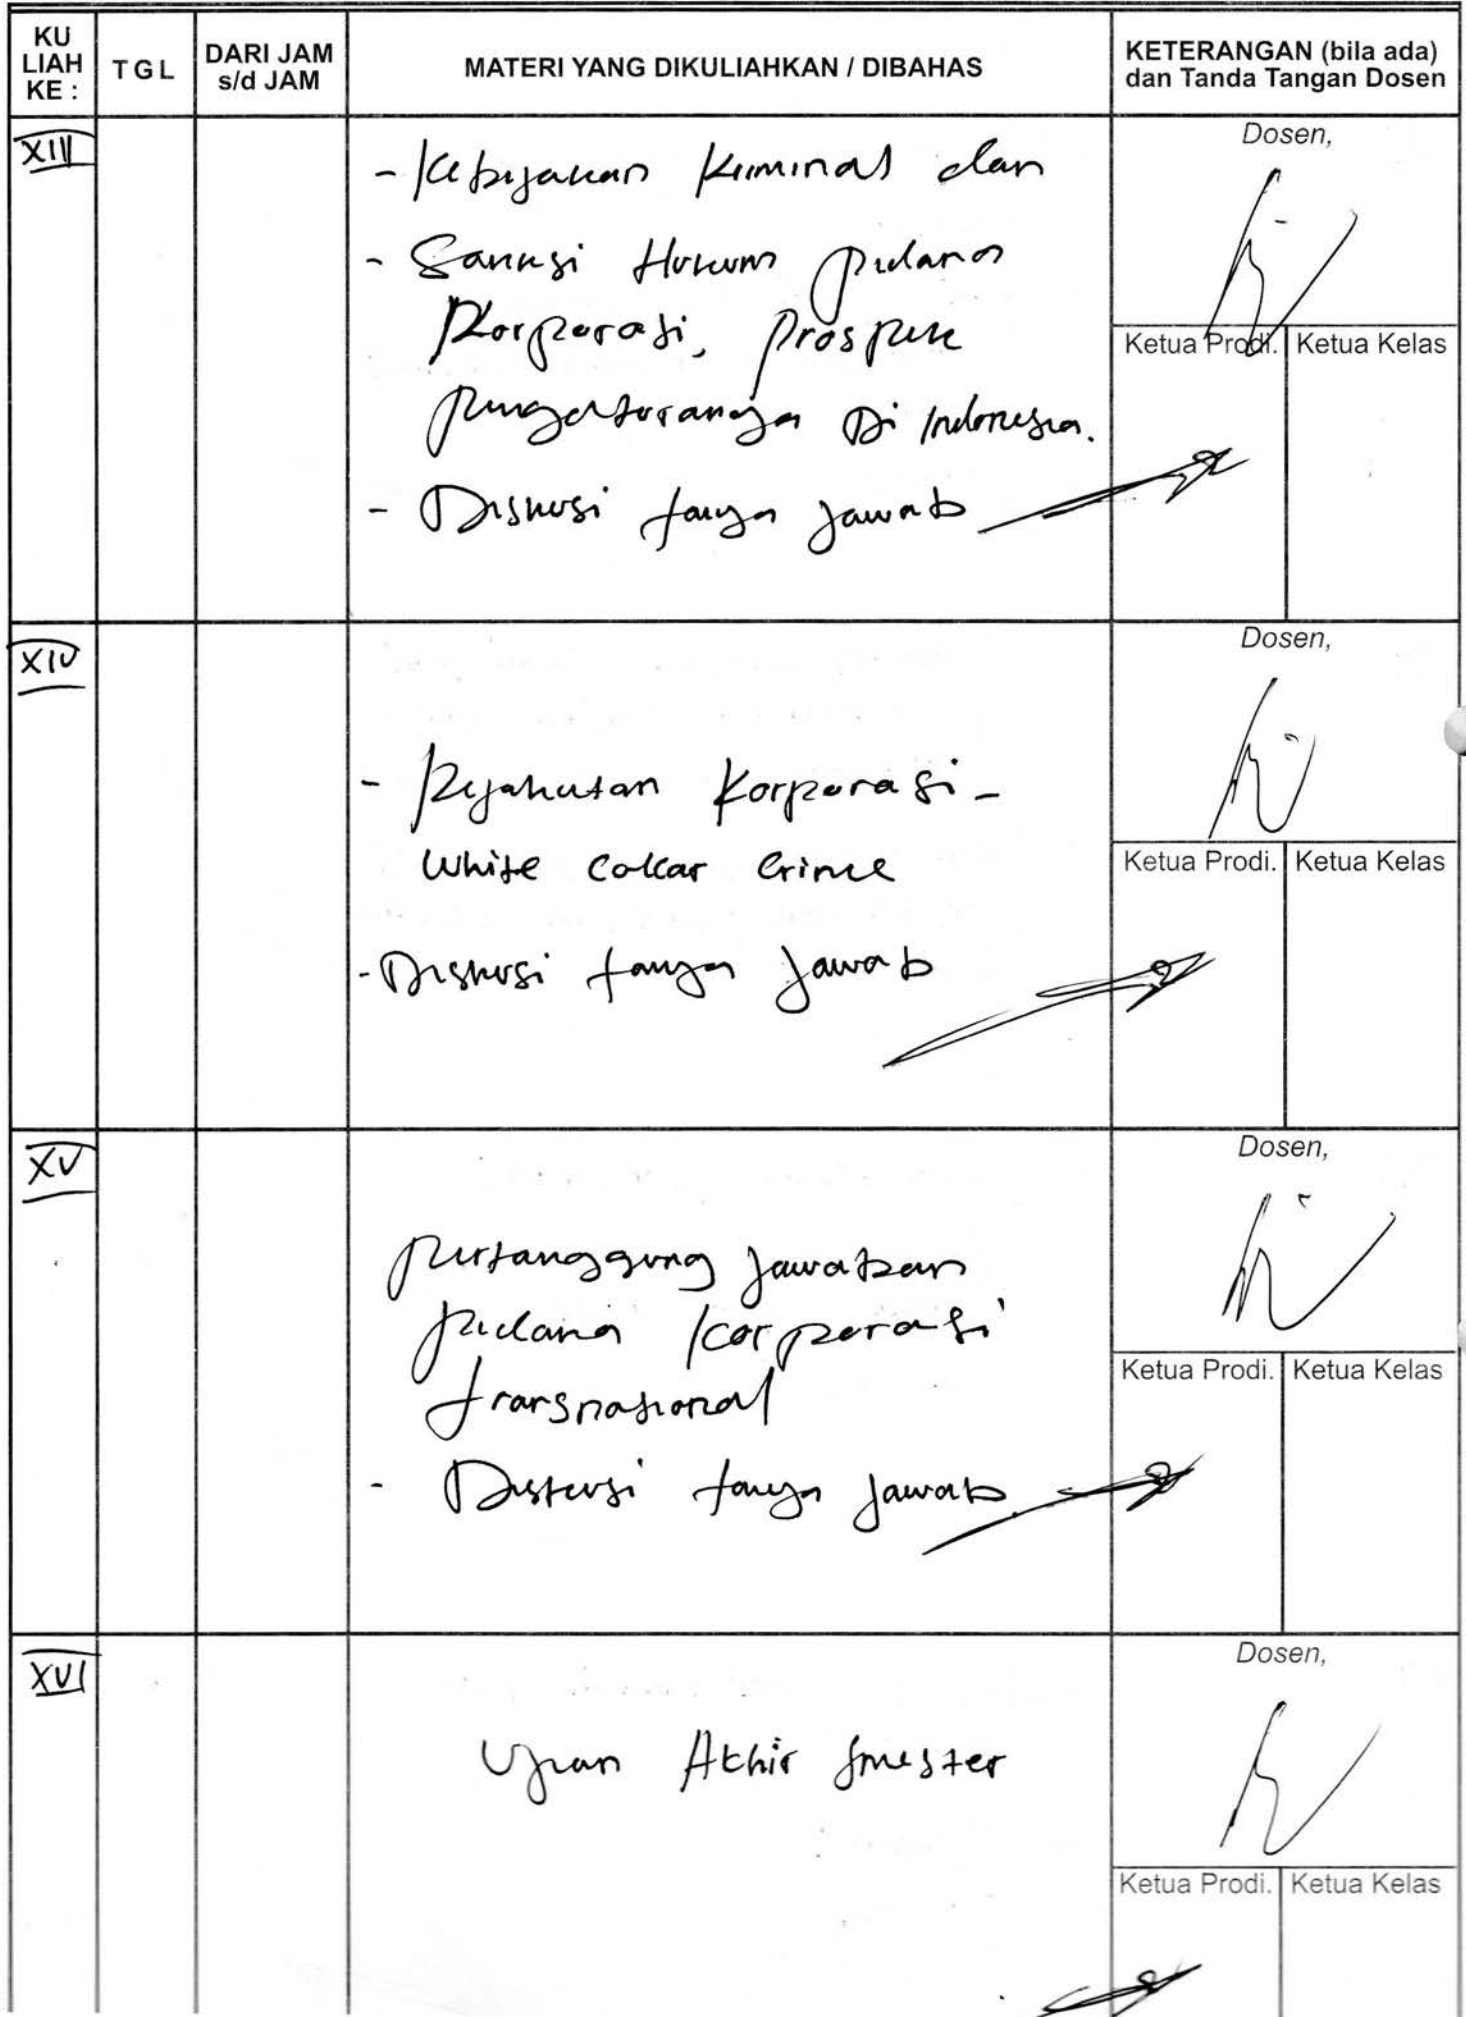 KU LIAH KE : TGL DARI JAM s/d JAM MATERI YANG DIKULIAHKAN / DIBAHAS KETERANGAN (bila ada) dan Tanda Tangan Dosen
XIII
Dosen,
- Kebijakan Kriminal dan
- Sanksi Hukum pidana
Korporasi, prospek
pengaturannya Di Indonesia.
- Diskusi tanya jawab
Ketua Prodi. Ketua Kelas
XIV
Dosen,
- Kejahatan Korporasi -
White Collar Crime
- Diskusi tanya Jawab
Ketua Prodi. Ketua Kelas
XV
Dosen,
pertanggung jawaban
pidana korporasi
transnasional
- Diskusi tanya jawab
Ketua Prodi. Ketua Kelas
XVI
Dosen,
Ujian Akhir Smester
Ketua Prodi. Ketua Kelas